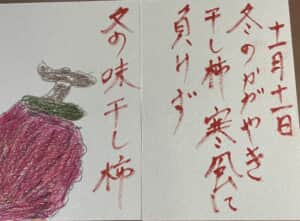 十一月十一日
冬のかがやき
干し柿 寒風に
負けず
冬の味干し柿